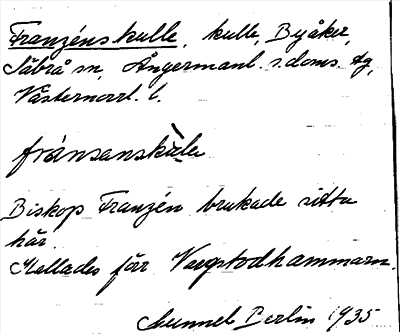 Franzéns kulle, kulle, Byåker,
Säbrå sn, Ångermanl. s. doms. tg,
Västernorrl. l.
fránsanskùle
Biskop Franzén brukade sitta
här.
Kallades förr Vargstodhammarn.
Gunnel Berlin 1935